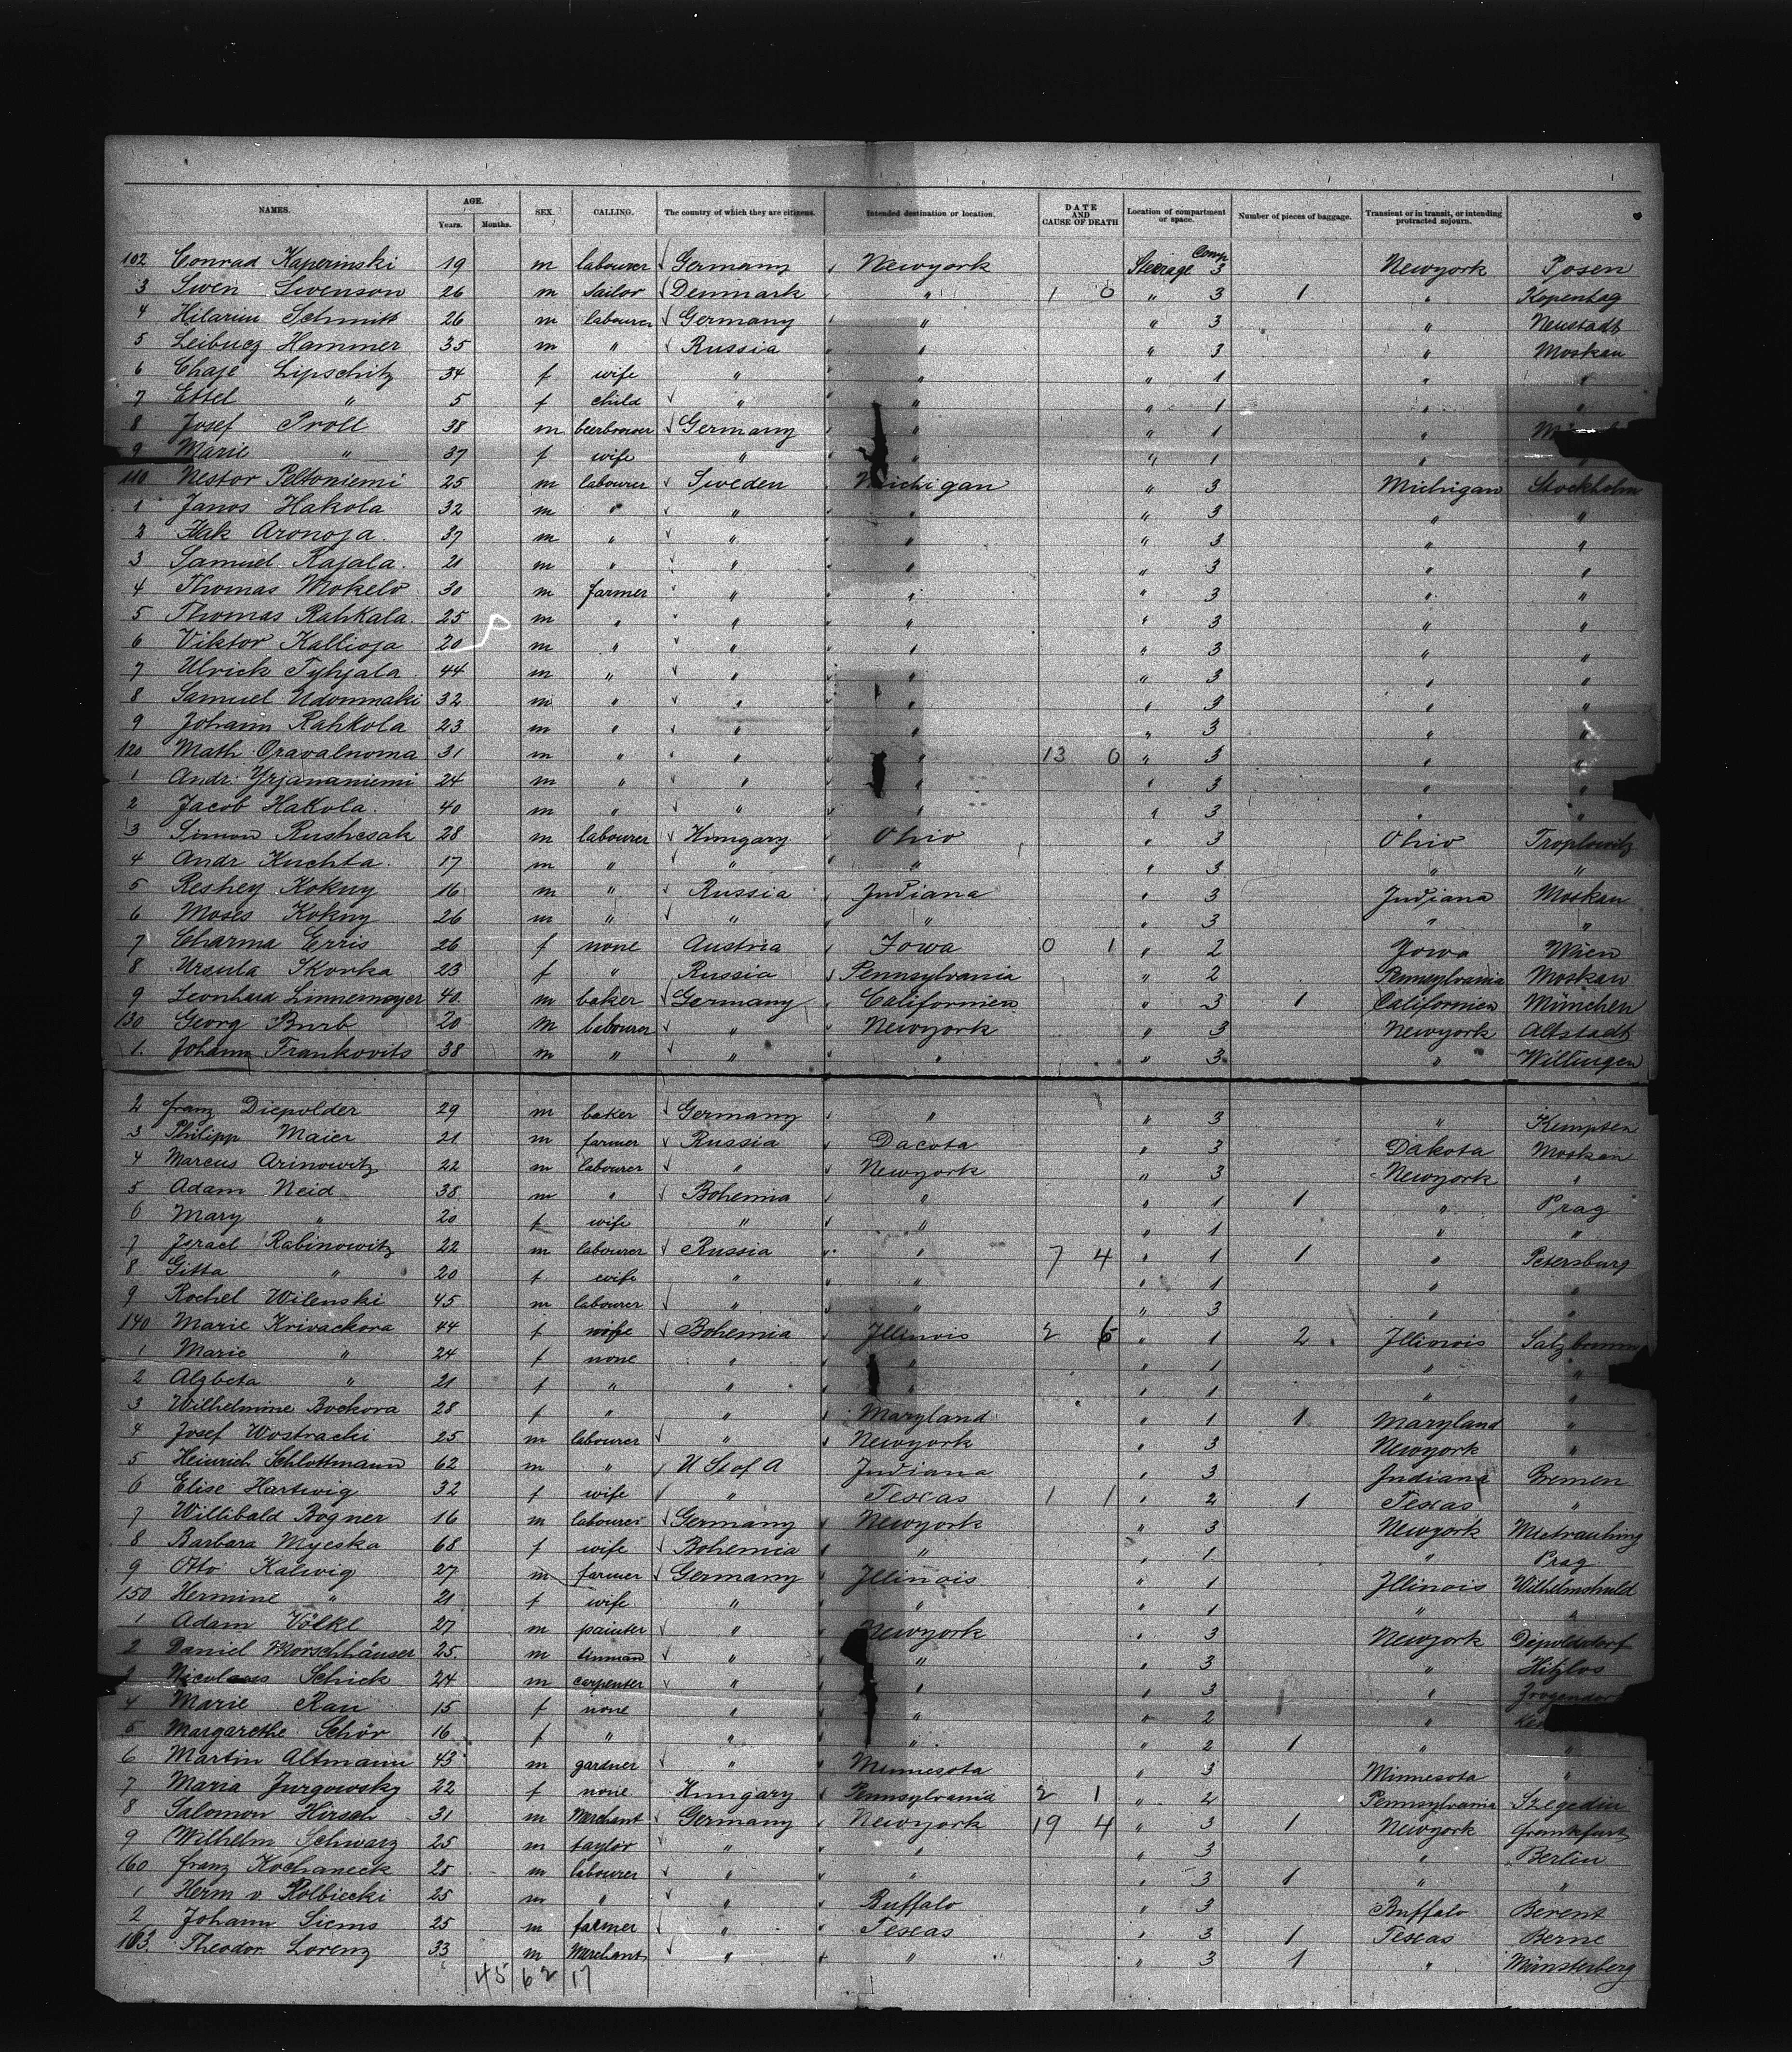 NAMES. AGE. Years. Months. SEX. CALLING. The country of which they are citizens. Intended destination or location. DATE AND CAUSE OF DEATH Location of compartment or space. Number of pieces of baggage. Transient or in transit, or intending protracted sojourn.
102 Conrad Kaperinski 19 m labourer Germany Newyork Steerage Comp 3 Newyork Posen
3 Swen Swenson 26 m Sailor Denmark " 1 0 " 3 1 " Kopenhag
4 Hilarius Schmitt 26 m labourer Germany " " 3 " Neustadt
5 Leibucz Hammer 35 m " Russia " " 3 " Moskau
6 Chaje Lipschitz 34 f wife " " " 1 " "
7 Ettel " 5 f child " " " 1 " "
8 Josef Proll 38 m beerbrower Germany " " 1 "
9 Marie " 37 f wife " " " 1 "
110 Nestor Peltoniemi 25 m labourer Sweden Michigan " 3 Michigan Stockholm
1 Janos Hakola 32 m " " " " 3 " "
2 Isak Aronoja 37 m " " " " 3 " "
3 Samuel Rajala 21 m " " " " 3 " "
4 Thomas Mokelo 30 m farmer " " " 3 " "
5 Thomas Rahkala 25 m " " " " 3 " "
6 Viktor Kallioja 20 m " " " " 3 " "
7 Ulrick Tyhjala 44 m " " " " 3 " "
8 Samuel Udonmaki 32 m " " " " 3 " "
9 Johann Rahkola 23 m " " " " 3 " "
120 Math. Oravalnoma 31 m " " " 13 0 " 3 " "
1 Andr. Yrjananiemi 24 m " " " " 3 " "
2 Jacob Hakola 40 m " " " " 3 " "
3 Simon Rushcsak 28 m labourer Hungary Ohio " 3 Ohio Troplowitz
4 Andr Kuchta 17 m " " " " 3 " "
5 Reshey Kokny 16 m " Russia Indiana " 3 Indiana Moskau
6 Moses Kokny 26 m " " " " 3 " "
7 Charma Erris 26 f none Austria Iowa 0 1 " 2 Iowa Wien
8 Ursula Skorka 23 f " Russia Pennsylvania " 2 Pennsylvania Moskau
9 Leonhard Linnemayer 40 m baker Germany Californien " 3 1 Californien München
130 Georg Burb 20 m labourer " Newyork " 3 Newyork Altstadt
1 Johann Frankovits 38 m " " " " 3 " Willingen
2 Franz Diepolder 29 m baker Germany " " 3 " Kempten
3 Philipp Maier 21 m farmer Russia Dacota " 3 Dakota Moskau
4 Marcus Arinowitz 22 m labourer " Newyork " 3 Newyork "
5 Adam Neid 38 m " Bohemia " " 1 1 " Prag
6 Mary " 20 f wife " " " 1 " "
7 Israel Rabinowitz 22 m labourer Russia " 7 4 " 1 1 " Petersburg
8 Gitta " 20 f wife " " " 1 " "
9 Rochel Wilenski 45 m labourer " " " 3 " "
140 Marie Krivackora 44 f wife Bohemia Illinois 2 6 " 1 2 Illinois Salzbrunn
1 Marie " 24 f none " " " 1 " "
2 Alzbeta " 21 f " " " " 1 " "
3 Wilhelmine Bockora 28 f " " Maryland " 1 1 Maryland "
4 Josef Wostracki 25 m labourer " Newyork " 3 Newyork "
5 Heinrich Schlottmann 62 m " U St of A Indiana " 3 Indiana Bremen
6 Elise Hartwig 32 f wife " Texas 1 1 " 2 1 Texas "
7 Willibald Bogner 16 m labourer Germany Newyork " 3 Newyork
8 Barbara Myeska 68 f wife Bohemia " " 1 " Prag
9 Otto Kalwig 27 m farmer Germany Illinois " 1 Illinois Wilhelmshuld
150 Hermine " 21 f wife " " " 1 " "
1 Adam Völkl 27 m painter " Newyork " 3 Newyork Diepoldsdorf
2 Daniel Morschhäuser 25 m tinman " " " 3 " Hitzlos
3 Nicolaus Schick 24 m carpenter " " " 3 "
4 Marie Rau 15 f none " " " 2 "
5 Margarethe Schör 16 f " " " " 2 1 " "
6 Martin Altmann 43 m gardner " Minnesota " 3 Minnesota "
7 Maria Jurgowsky 22 f none Hungary Pennsylvania 2 1 " 2 Pennsylvania Szegedin
8 Salomon Hirsch 31 m Merchant Germany Newyork 19 4 " 3 1 Newyork Frankfurt
9 Wilhelm Schwarz 25 m taylor " " " 3 " Berlin
160 Franz Kochaneck 28 m labourer " " " 3 1 " "
1 Herm v. Kolbiecki 25 m " " Buffalo " 3 Buffalo Berent
2 Johann Siems 25 m farmer " Texas " 3 1 Texas Berne
163 Theodor Lorenz 33 m Merchant " " " 3 1 " Münsterberg
45 62 17